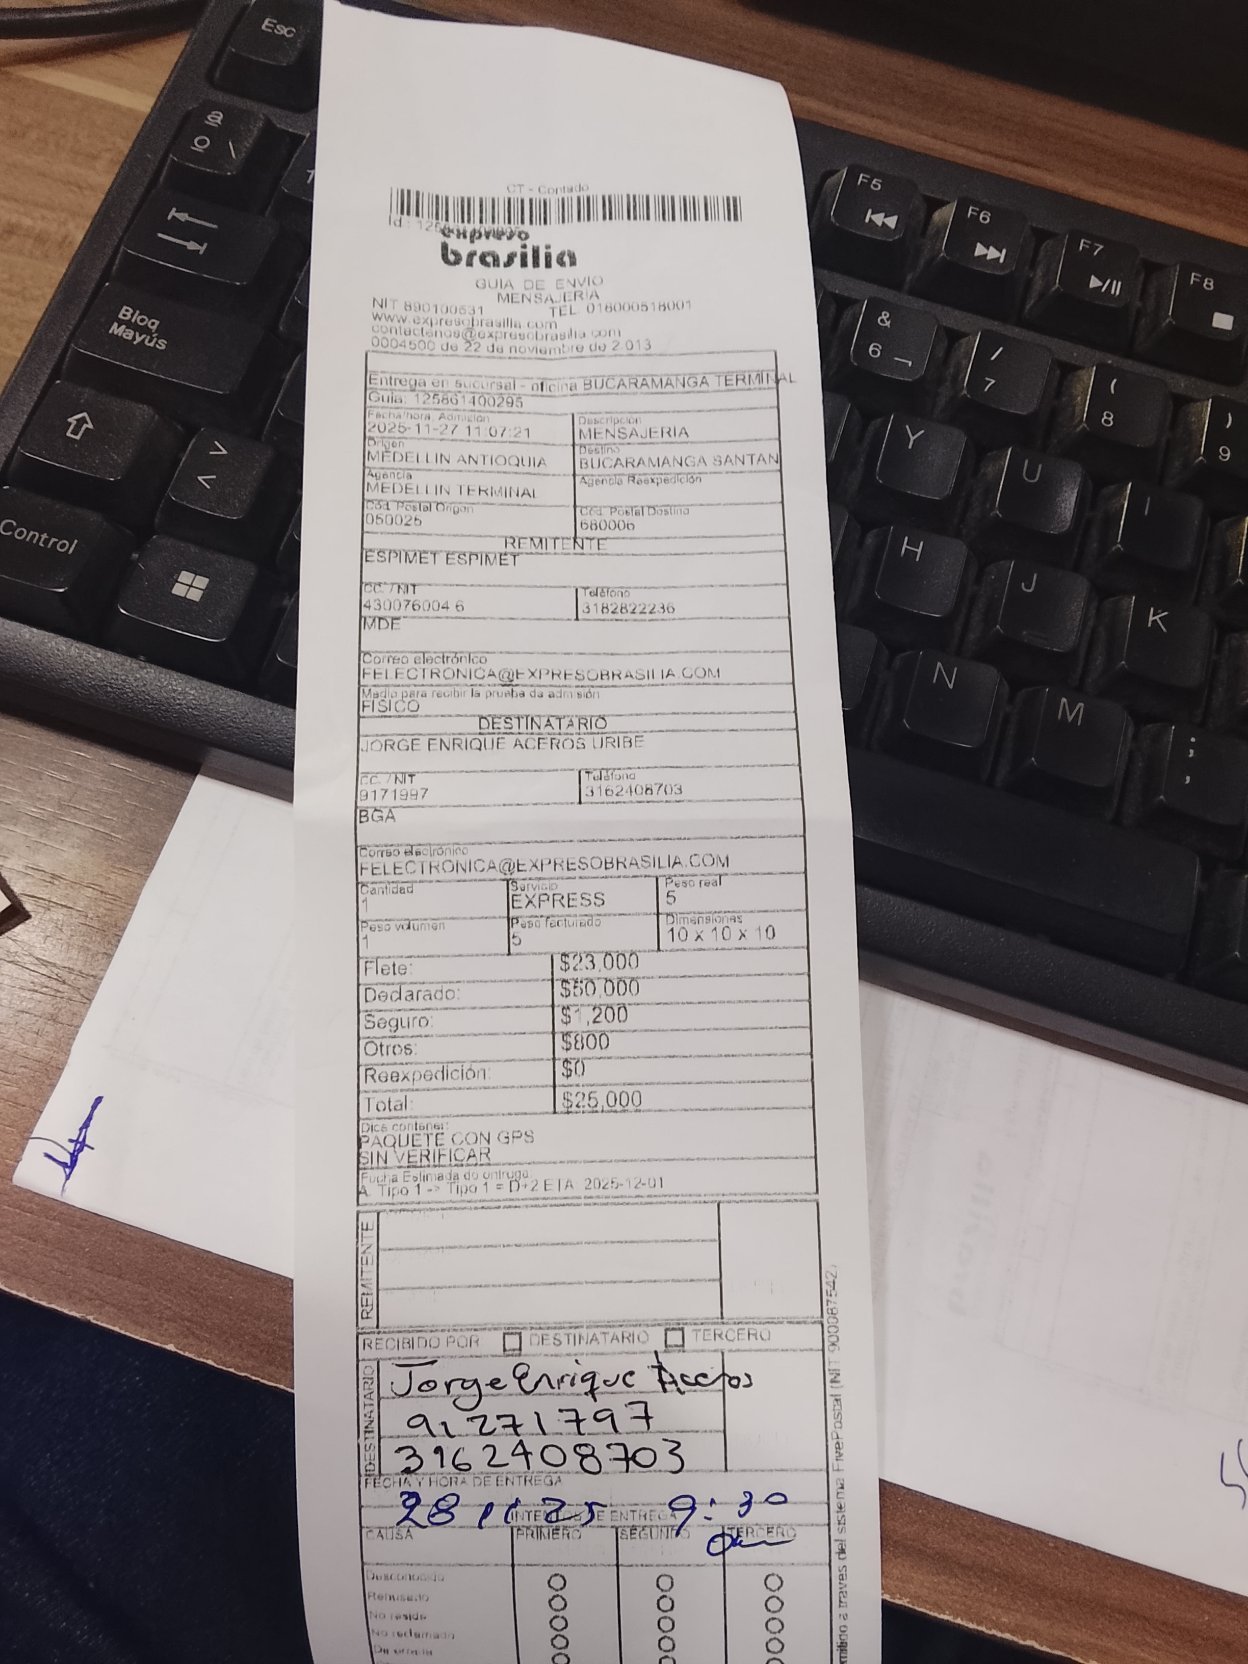 CT - Contado
expreso
brasilia
GUIA DE ENVIO
MENSAJERIA
NIT 890100531 TEL. 018000518001
www.expresobrasilia.com
contactenos@expresobrasilia.com
0004500 de 22 de noviembre de 2.013
Entrega en sucursal - oficina BUCARAMANGA TERMINAL
Guia: 125861400295
Fecha/hora. Admisión Descripción
2025-11-27 11:07:21 MENSAJERIA
Origen Destino
MEDELLIN ANTIOQUIA BUCARAMANGA SANTAN
Agencia Agencia Reexpedición
MEDELLIN TERMINAL
Cód. Postal Origen Cód. Postal Destino
050025 680006
REMITENTE
ESPIMET ESPIMET
CC. /NIT Teléfono
430076004 6 3182822236
MDE
Correo electrónico
FELECTRONICA@EXPRESOBRASILIA.COM
Medio para recibir la prueba de admisión
FISICO
DESTINATARIO
JORGE ENRIQUE ACEROS URIBE
CC. /NIT Teléfono
9171997 3162408703
BGA
Correo electrónico
FELECTRONICA@EXPRESOBRASILIA.COM
Cantidad Servicio Peso real
1 EXPRESS 5
Peso volumen Peso facturado Dimensiones
1 5 10 x 10 x 10
Flete: $23,000
Declarado: $50,000
Seguro: $1,200
Otros: $800
Reexpedición: $0
Total: $25,000
Dice contener:
PAQUETE CON GPS
SIN VERIFICAR
Fecha Estimada de entrega
A. Tipo 1 -> Tipo 1 = D+2 ETA: 2025-12-01
REMITENTE
RECIBIDO POR DESTINATARIO TERCERO
DESTINATARIO
Jorge Enrique Aceros
91271797
3162408703
FECHA Y HORA DE ENTREGA
28 11 25 9:30
am
INTENTOS DE ENTREGA
CAUSA PRIMERO SEGUNDO TERCERO
Desconocido
Rehusado
No reside
No reclamado
a traves del sistema FivePostal (NIT 900087542)
Esc
ª
º \
1
Bloq
Mayús
>
<
Control
F5
F6
F7
F8
&
6 ¬
/
7
(
8
)
9
Y
U
I
H
J
K
N
M
;
,